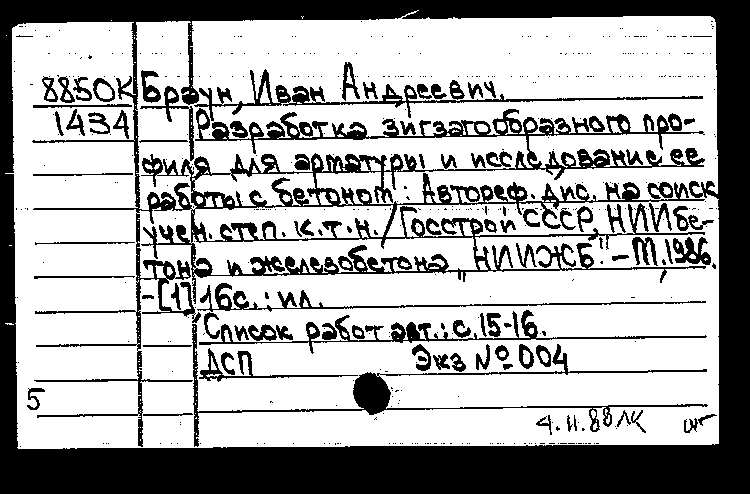 8850К Браун, Иван Андреевич.
1434 Разработка зигзагообразного про-
филя для арматуры и исследование ее
работы с бетоном : Автореф. дис. на соиск
учен. степ. к.т.н. / Госстрой СССР, НИИ бе-
тона и железобетона "НИИЖБ". – М., 1986.
– [1] 16с. : ил.
Список работ авт.: с. 15-16.
ДСП Экз № 004
5
4.11.88 ЛК